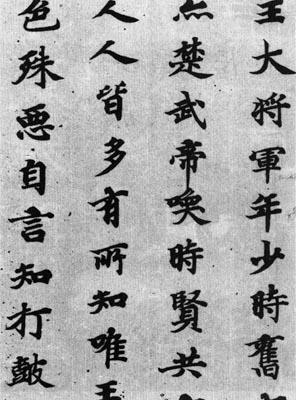 王大将軍年少時舊
楚武帝喚時賢共
人人皆多有所知唯王
色殊悪自言知打皷